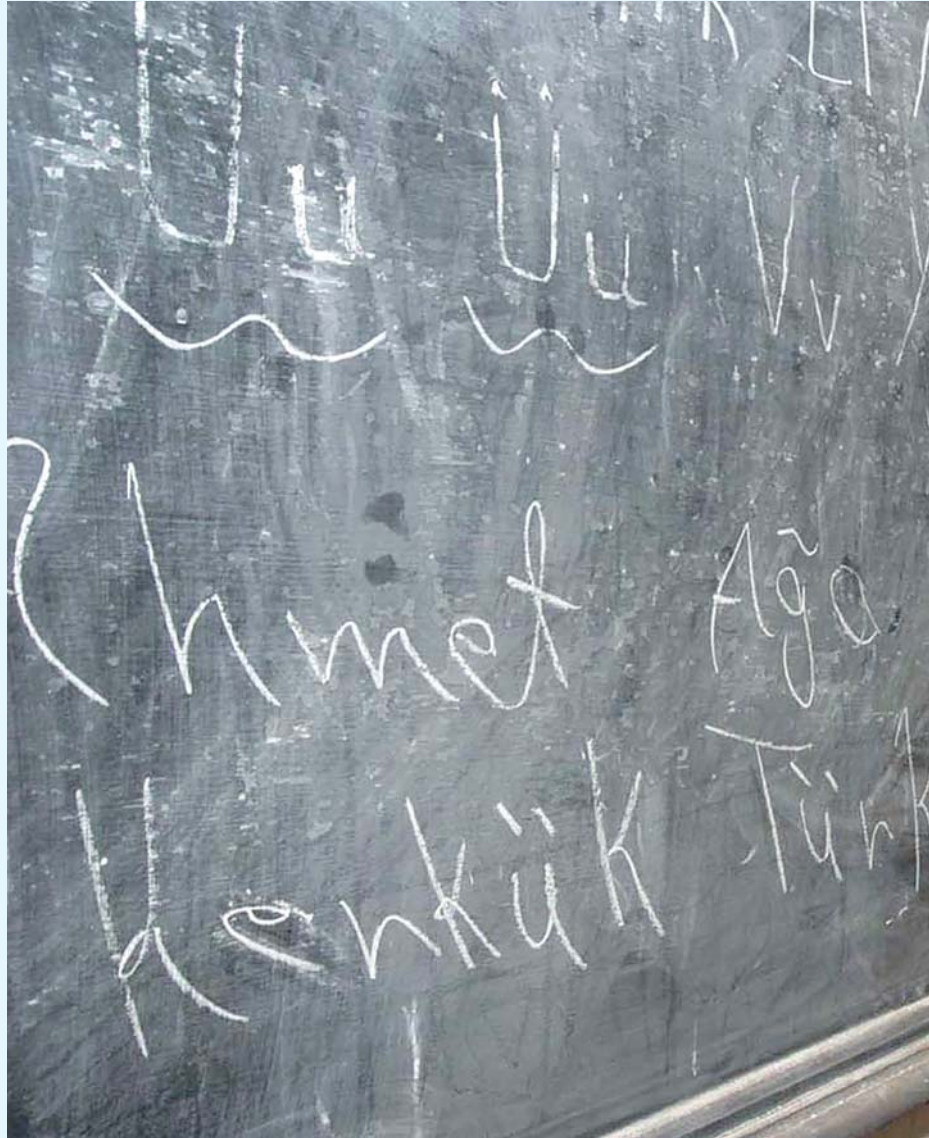 U u Ü ü, V v
Ahmet Ağa
Henkük Türk